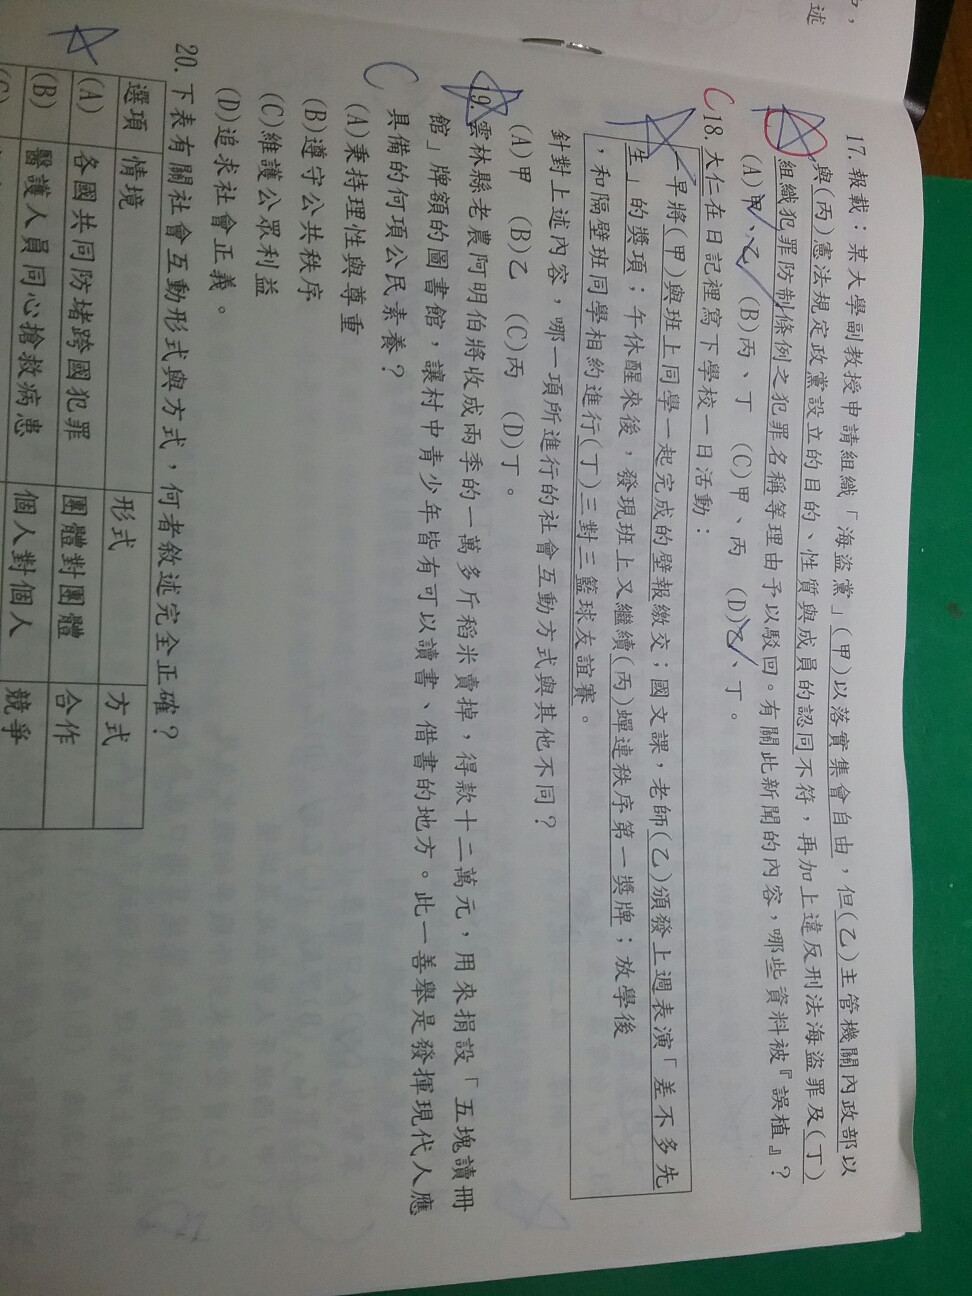 述
17.報載：某大學副教授申請組織「海盜黨」(甲)以落實集會自由，但(乙)主管機關內政部以
與(丙)憲法規定政黨設立的目的、性質與成員的認同不符，再加上違反刑法海盜罪及(丁)
組織犯罪防制條例之犯罪名稱等理由予以駁回。有關此新聞的內容，哪些資料被『誤植』？
(A)甲、乙 (B)丙、丁 (C)甲、丙 (D)乙、丁。
C 18.大仁在日記裡寫下學校一日活動：
一早將(甲)與班上同學一起完成的壁報繳交；國文課，老師(乙)頒發上週表演「差不多先
生」的獎項；午休醒來後，發現班上又繼續(丙)蟬連秩序第一獎牌；放學後
，和隔壁班同學相約進行(丁)三對三籃球友誼賽。
針對上述內容，哪一項所進行的社會互動方式與其他不同？
(A)甲 (B)乙 (C)丙 (D)丁。
19.雲林縣老農阿明伯將收成兩季的一萬多斤稻米賣掉，得款十二萬元，用來捐設「五塊讀冊
館」牌額的圖書館，讓村中青少年皆有可以讀書、借書的地方。此一善舉是發揮現代人應
C 具備的何項公民素養？
(A)秉持理性與尊重
(B)遵守公共秩序
(C)維護公眾利益
(D)追求社會正義。
20.下表有關社會互動形式與方式，何者敘述完全正確？
選項 情境 形式 方式
(A) 各國共同防堵跨國犯罪 團體對團體 合作
(B) 醫護人員同心搶救病患 個人對個人 競爭